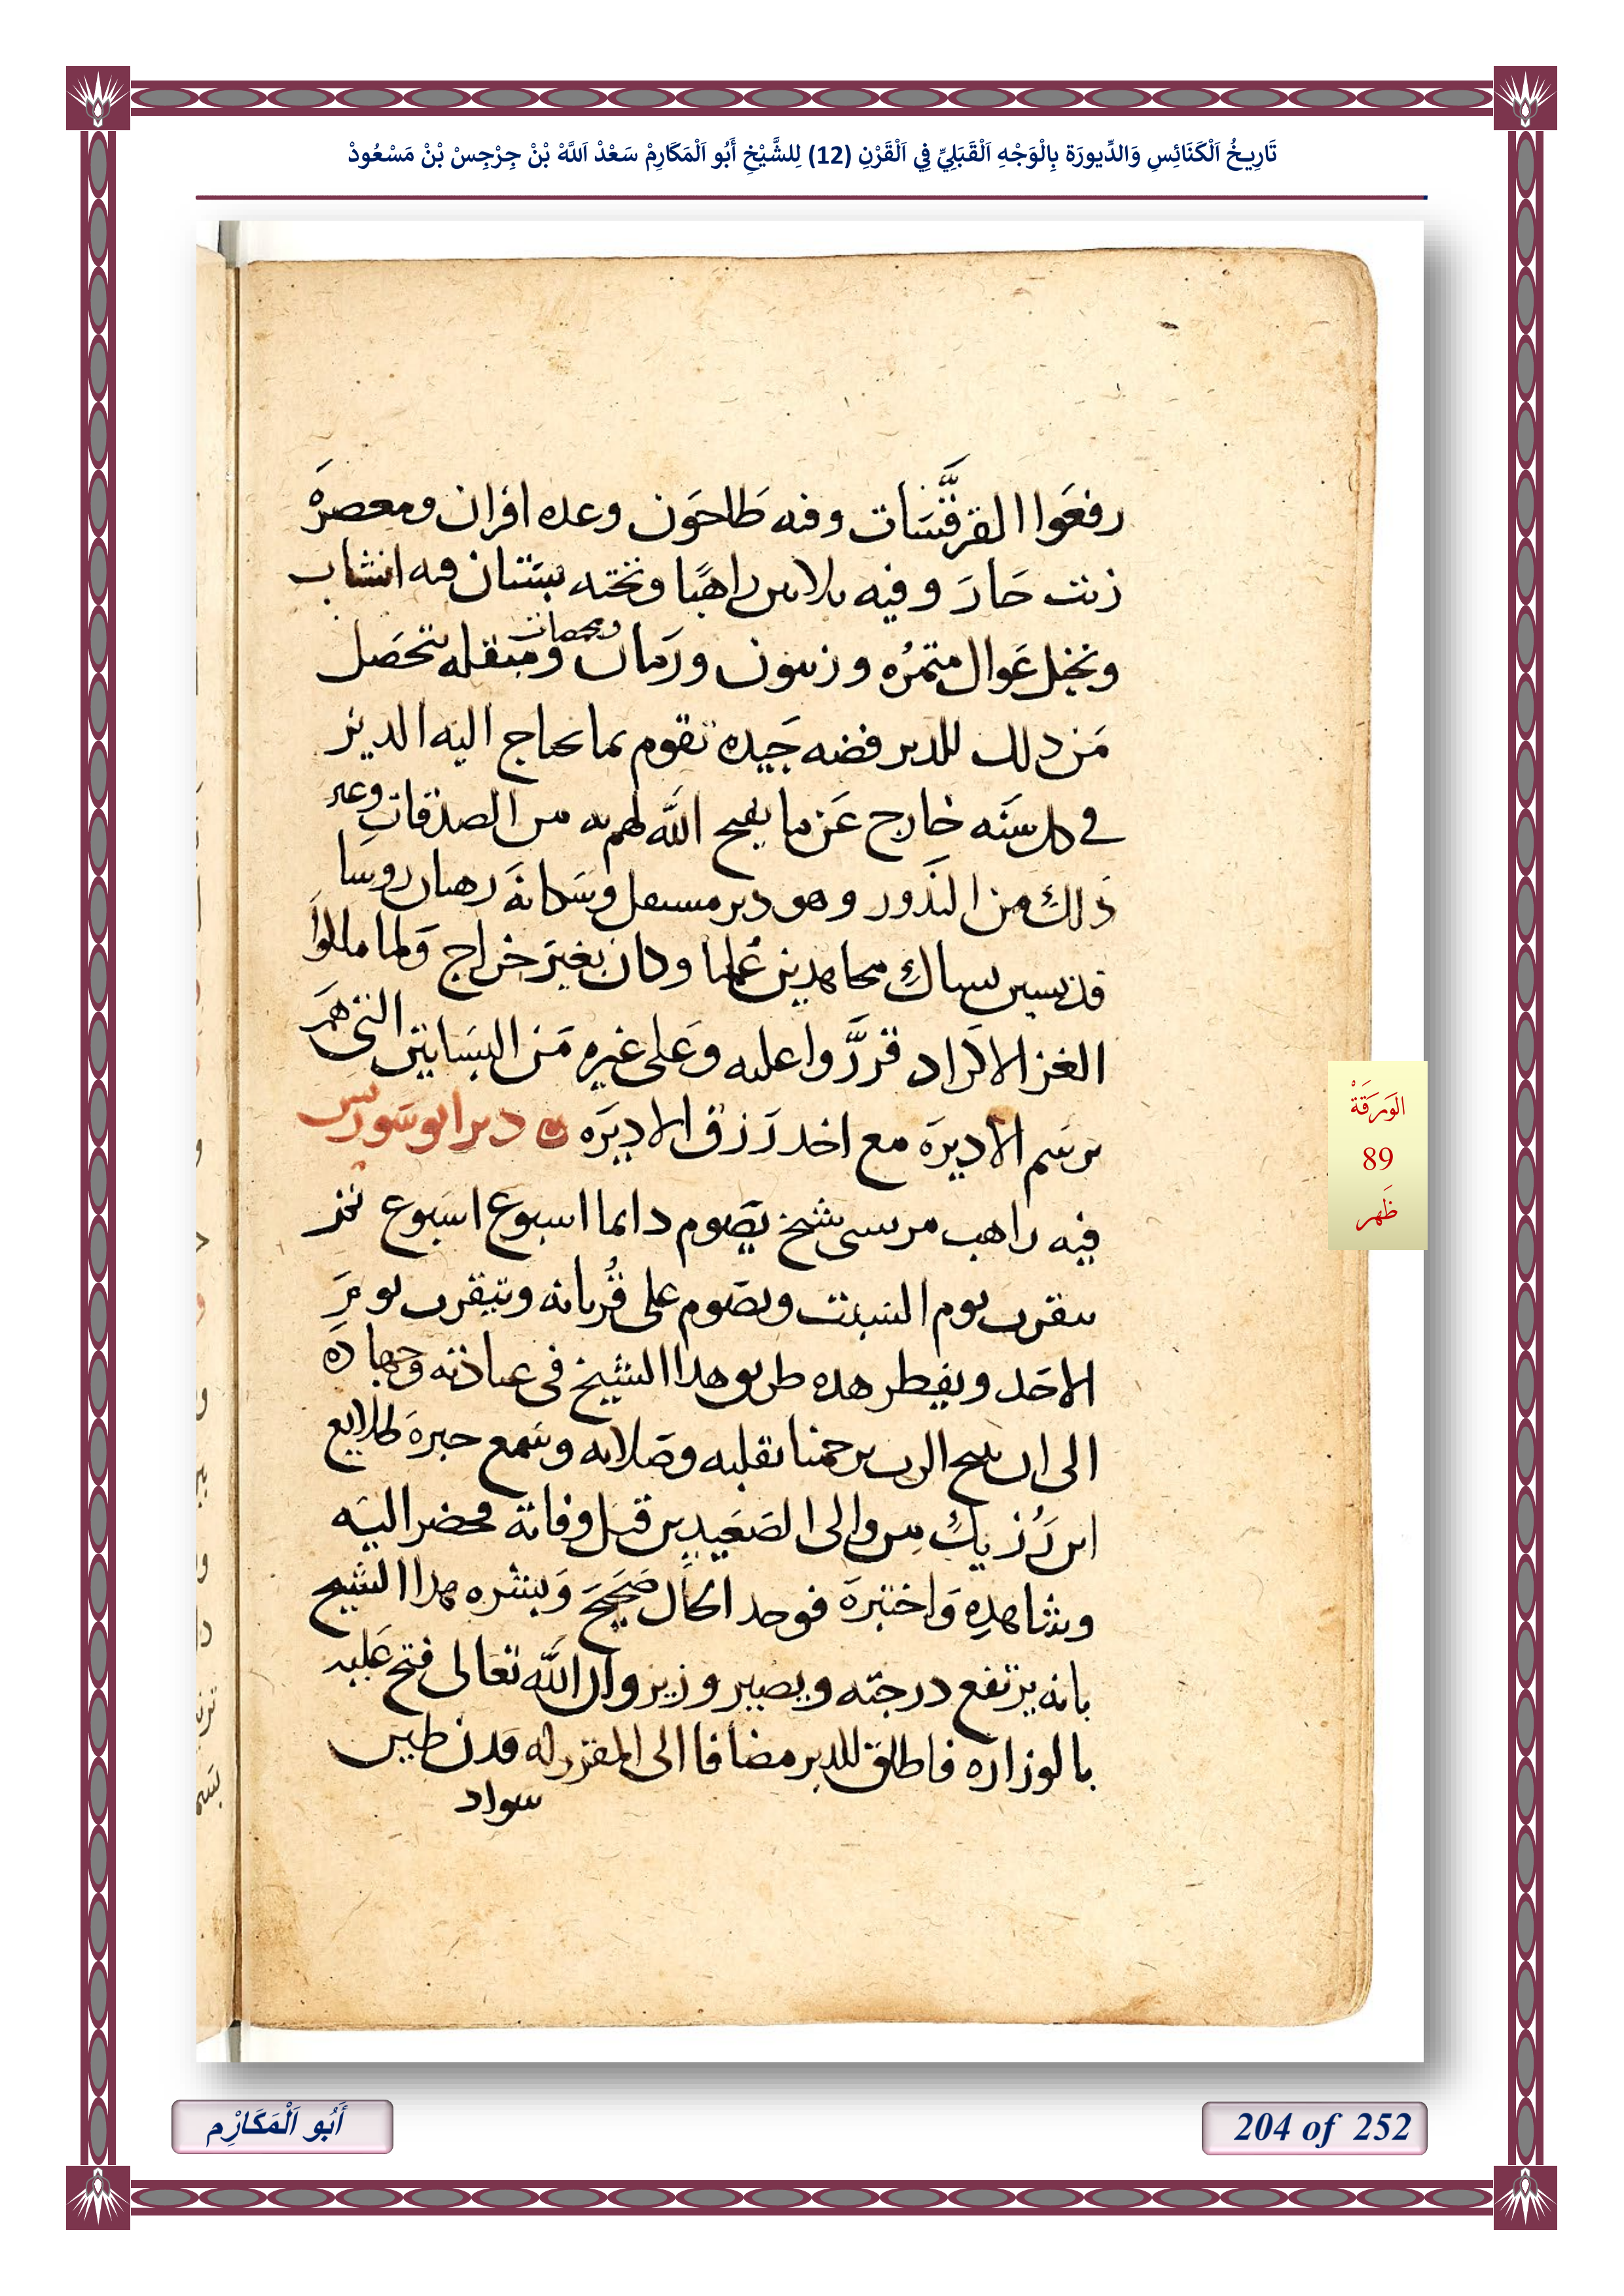 تَارِيخُ اَلْكَنَائِسِ وَالدِّيورَة بِالْوَجْهِ اَلْقَبَلِيِّ فِي اَلْقَرْنِ (12) لِلشَّيْخِ أَبُو اَلْمَكَارِمْ سَعْدْ اَللَّهْ بْنْ جِرْجِسْ بْنْ مَسْعُودْ
رفعوا القرفسات وفيه طاحون وعده افران ومعصرة
زيت حار وفيه ثلاثين راهبًا وتحته بستان فيه انشاب
ونخيل عوال متمره وزيتون ورمان ومحمصات ومبقله تتحصل
من ذلك للدير فضه جيده تقوم بما يحتاج اليه الدير
في كل سنه خارج عن ما يفتح الله لهم به من الصدقات وغير
ذلك من النذور وهو دير مستقل وسكانه رهبان روسا
قديسين نساك مجاهدين علما وكان بغير خراج ولما ملكوا
الغز الاكراد قرروا عليه وعلى غيره من البساتين التي هم
برسم الاديرة مع اخد رزق الاديرة دير ابو سورس
فيه راهب مرسي شيخ يصوم دايما اسبوع اسبوع
يتقرب يوم السبت ويصوم على قربانه ويتقرب يوم
الاحد ويفطر هده طريق هدا الشيخ في عبادته وجهاده
الى ان يتنيح الرب يرحمنا بقلبه وصلاته وسمع خبره طلايع
ابن رزيك من والى الصعيد من قبل وفاته فحضر اليه
وشاهده واختبره فوجد الحال صحيح وبشره هدا الشيخ
بانه يرتفع درجته ويصير وزير وان الله تعالى فتح عليه
بالوزاره فاطلق للدير مضافا الى المقرر له فدن طين
سواد
اَلوَرَقَةْ
89
ظَهر
أَبُو اَلْمَكَارِْم
204 of 252